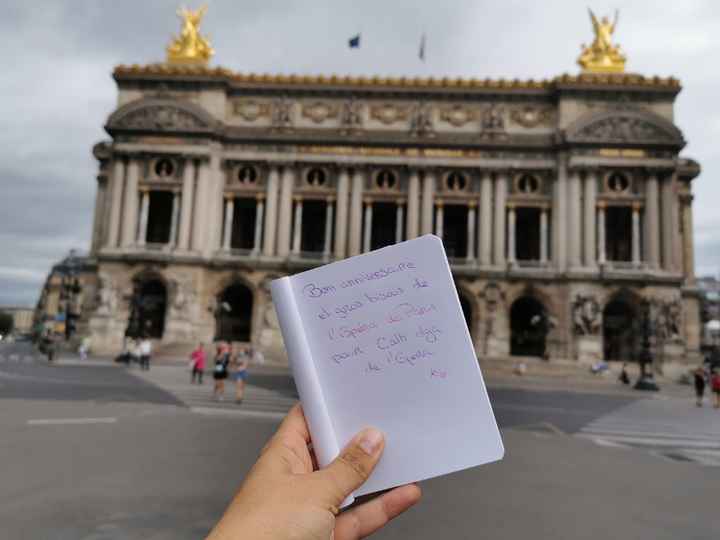 Bon anniversaire
et gros bisous de
l'Opéra de Paris
pour Cath alga
de l'Opéra